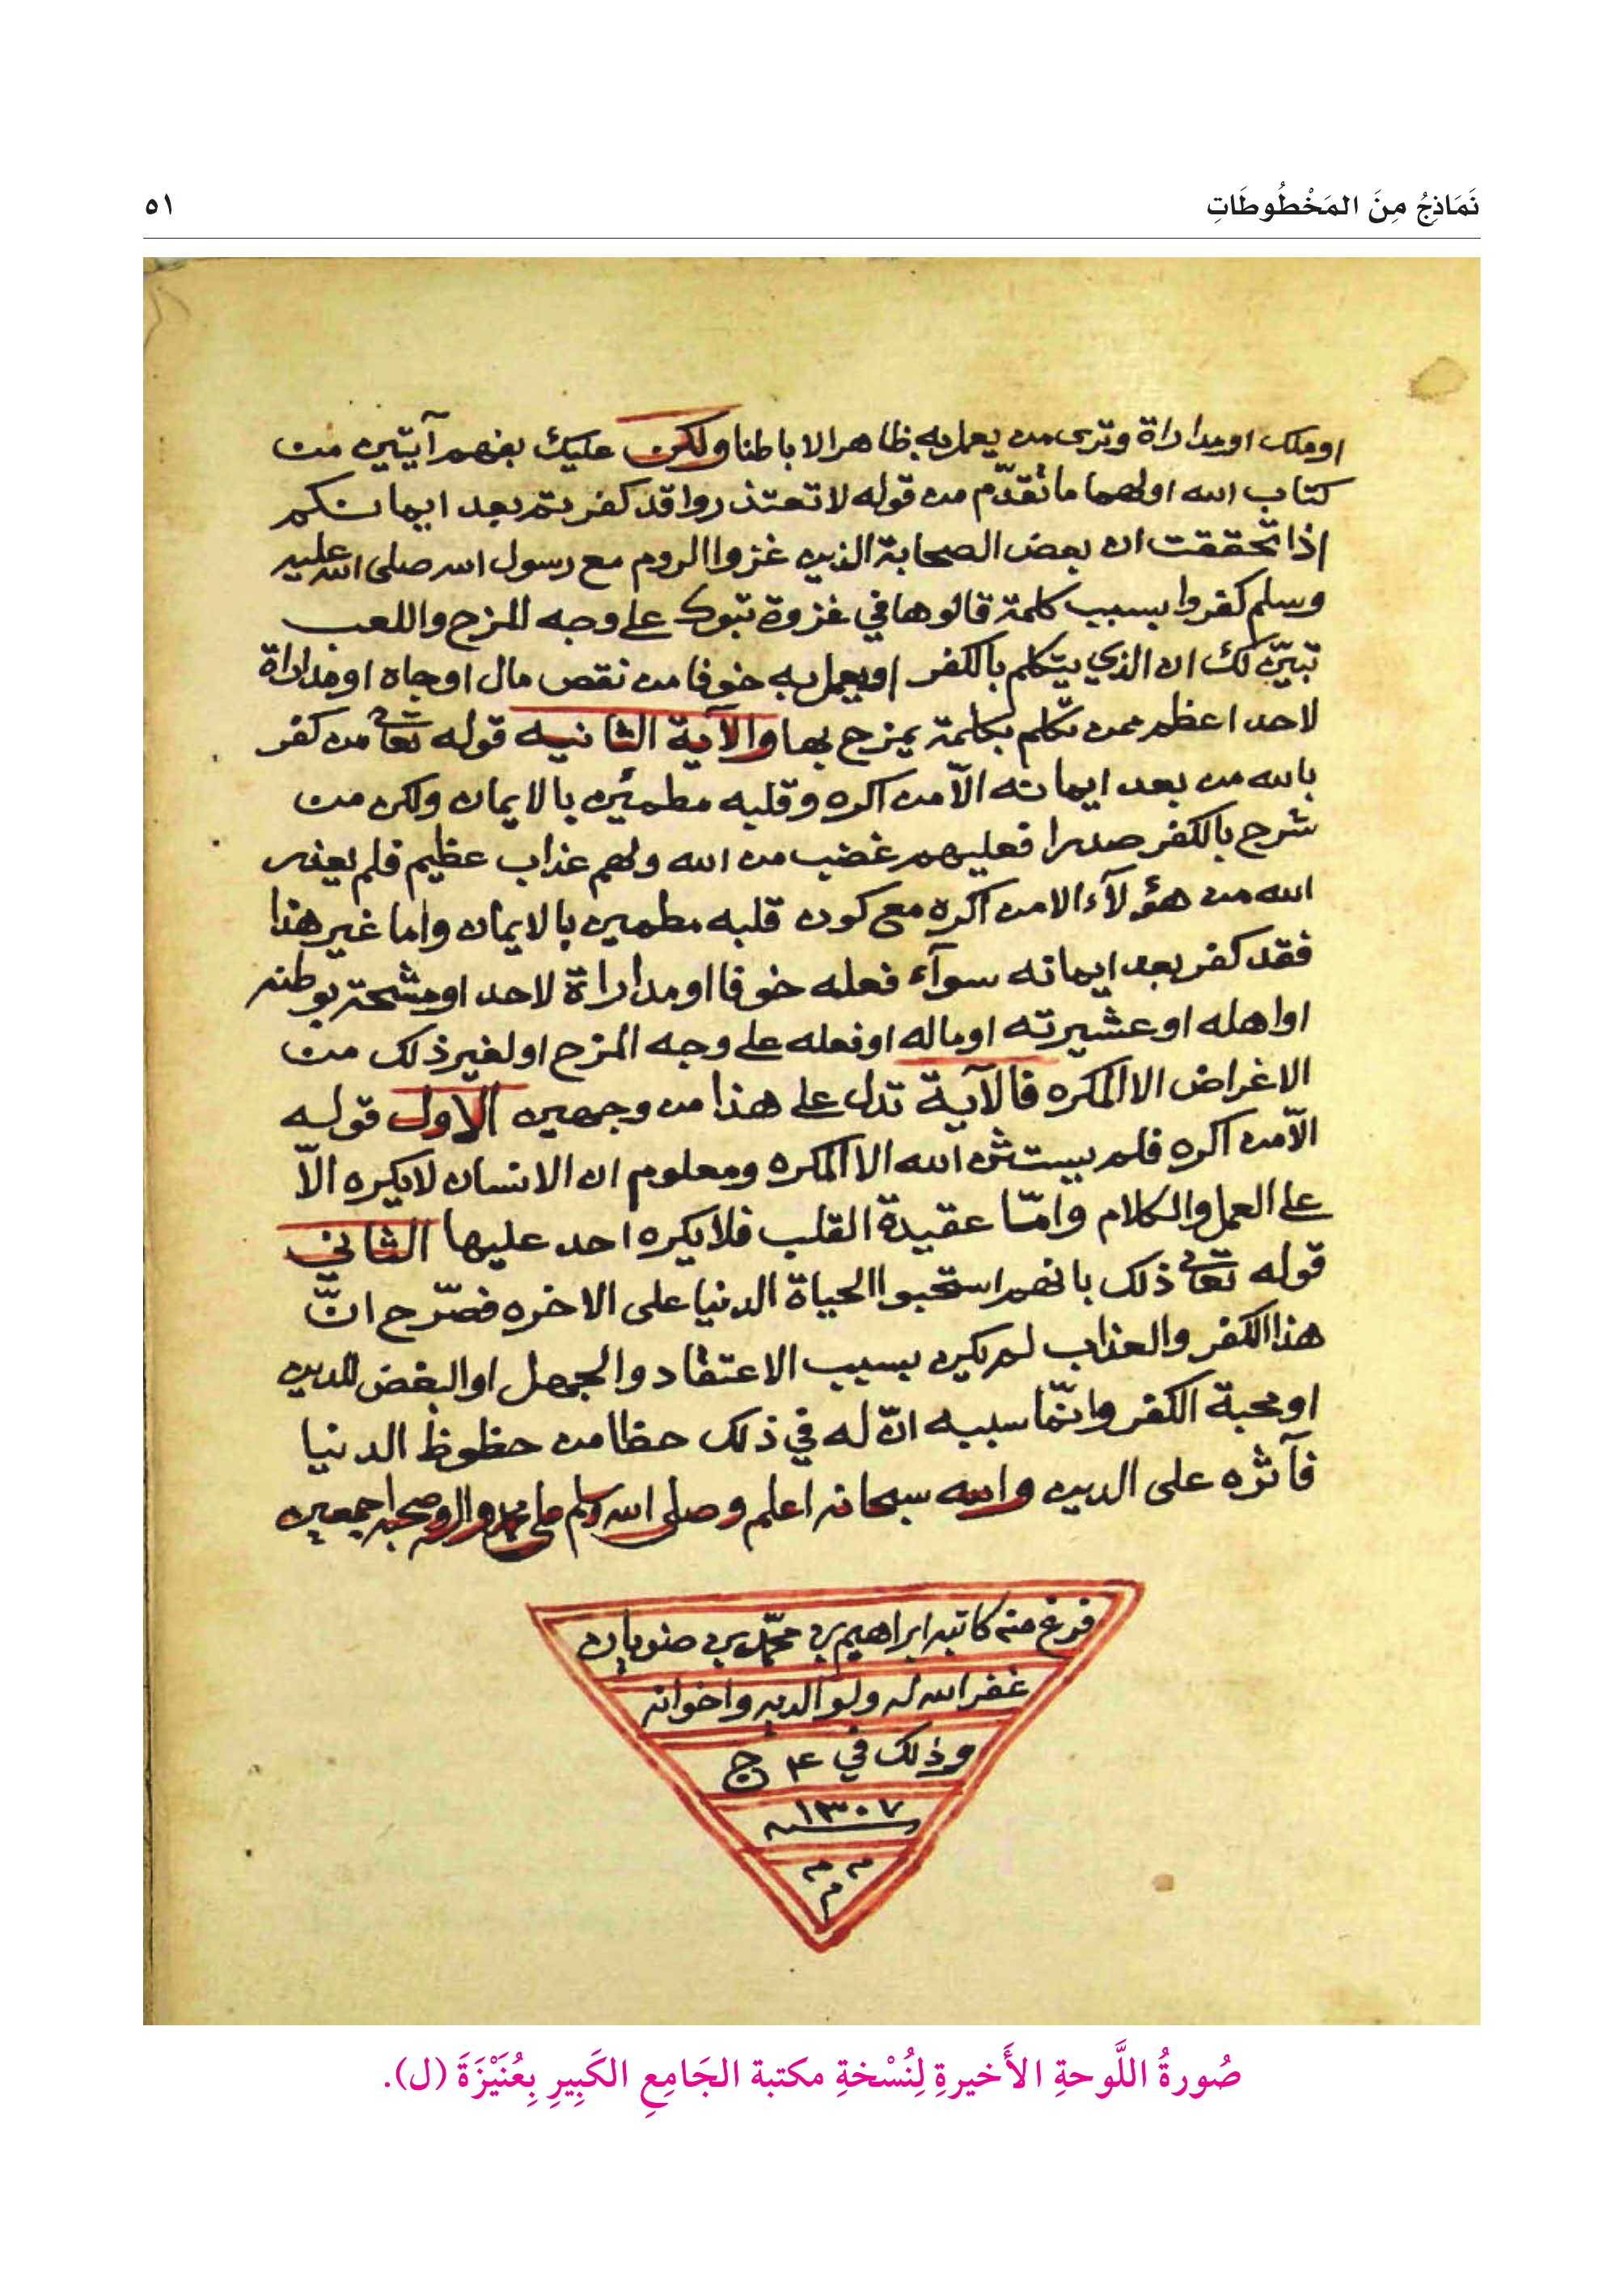 نَمَاذِجُ مِنَ المَخْطُوطَاتِ
٥١
او ملك او مداراة وترى من يعمل به ظاهرا لا باطنا ولكن عليك بفهم آيتين من
كتاب الله اولهما ما تقدّم من قوله لا تعتذروا قد كفرتم بعد ايمانكم
إذا تحققت ان بعض الصحابة الذين غزوا الروم مع رسول الله صلى الله عليه
وسلم كفروا بسبب كلمة قالوها في غزوة تبوك على وجه المزح واللعب
تبيّن لك ان الذي يتكلم بالكفر او يعمل به خوفا من نقص مال او جاه او مداراة
لاحد اعظم ممن تكلم بكلمة يمزح بها والآية الثانيه قوله تعالى من كفر
بالله من بعد ايمانه الاّ من اكره وقلبه مطمئن بالايمان ولكن من
شرح بالكفر صدرا فعليهم غضب من الله ولهم عذاب عظيم فلم يعذر
الله من هؤلآء الا من اكره مع كون قلبه مطمين بالايمان واما غير هذا
فقد كفر بعد ايمانه سوآء فعله خوفا او مداراة لاحد او مشحة بوطنه
او اهله او عشيرته او ماله او فعله على وجه المزح او لغير ذلك من
الاغراض الا المكره فالآية تدل على هذا من وجهين الاول قوله
الاّ من اكره فلم يستثن الله الا المكره ومعلوم ان الانسان لا يكره الاّ
على العمل والكلام وامّا عقيدة القلب فلا يكره احد عليها الثاني
قوله تعالى ذلك بانهم استحبوا الحياة الدنيا على الاخره فصّرح انّ
هذا الكفر والعذاب لم يكن بسبب الاعتقاد والجهل او البغض للدين
او محبة الكفر وانّما سببه انّ له في ذلك حظا من حظوظ الدنيا
فآثره على الدين والله سبحانه اعلم وصلى الله وسلم على محمد واله وصحبه اجمعين
فرغ منه كاتبه ابراهيم بن محمّد بن ضويان
غفر الله له ولوالديه واخوانه
وذلك في ٤ ج
١٣٠٧
م م
م
صُورةُ اللَّوحةِ الأَخيرةِ لِنُسْخةِ مكتبة الجَامِعِ الكَبِيرِ بِعُنَيْزَةَ (ل).